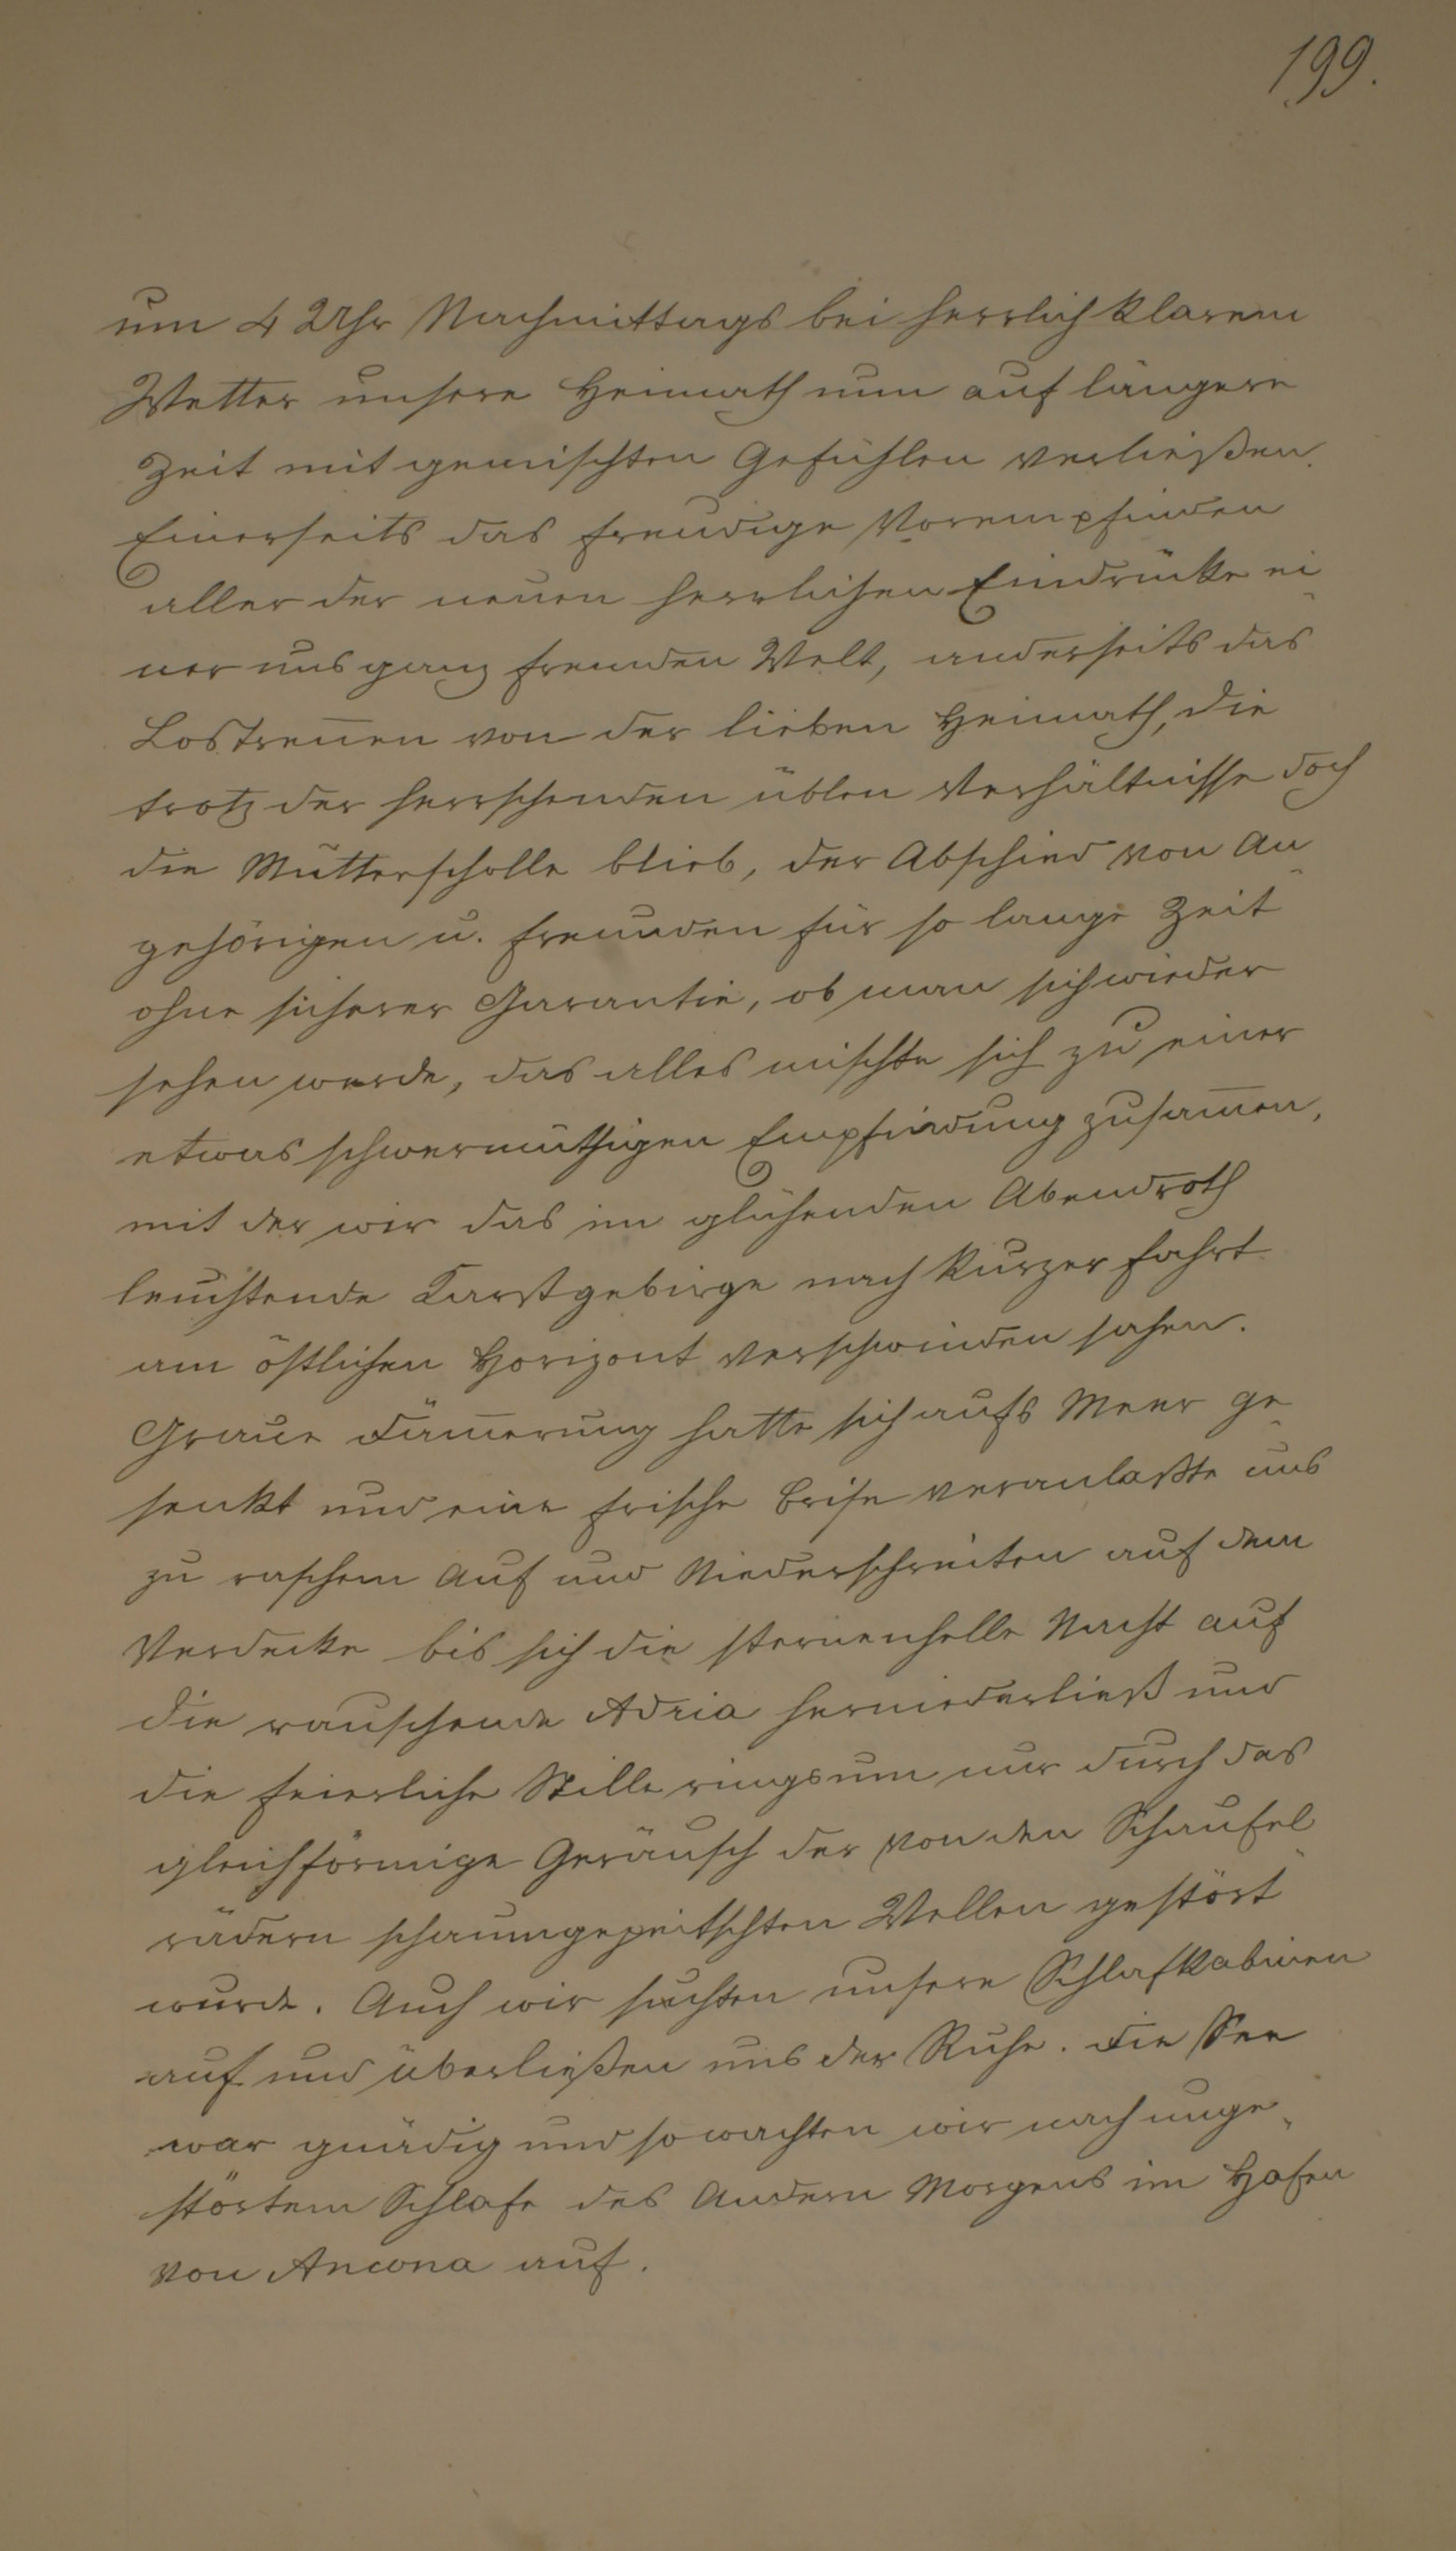 199.
um 4 Uhr Nachmittags bei herrlich klarem
Wetter unsere Heimath nun auf längere
Zeit mit gemischten Gefühlen verließen.
Einerseits das freudige Vorempfinden
aller der neuen herrlichen Eindrücke ei-
ner uns ganz fremden Welt, anderseits das
Lostreñen von der lieben Heimath, die
trotz der herrschenden üblen Verhältnisse doch
die Mutterscholle blieb, der Abschied von An-
gehörigen u. Freunden für so lange Zeit
ohne sicherer Garantie, ob man sich wieder
sehen werde, das alles mischte sich zu einer
etwas schwermüthigen Empfindung zusam̄en,
mit der wir das im glühenden Abendroth
leuchtende Karstgebirge nach kurzer Fahrt
am östlichen Horizont verschwinden sahen.
Graue Däm̄erung hatte sich aufs Meer ge-
senkt und eine frische Brise veranlaßte uns
zu raschem Auf und Niederschreiten auf dem
Verdecke bis sich die sternenhelle Nacht auf
die rauschende Adria herniederließ und
die feierliche Stille ringsum nur durch das
gleichförmige Geräusch der von den Schaufel-
rädern schaumgepeitschten Wellen gestört
wurde. Auch wir suchten unsere Schlafkabinen
auf und überließen uns der Ruhe. Die See
war gnädig und so wachten wir nach unge-
störtem Schlafe des Andern Morgens im Hafen
von Ancona auf.